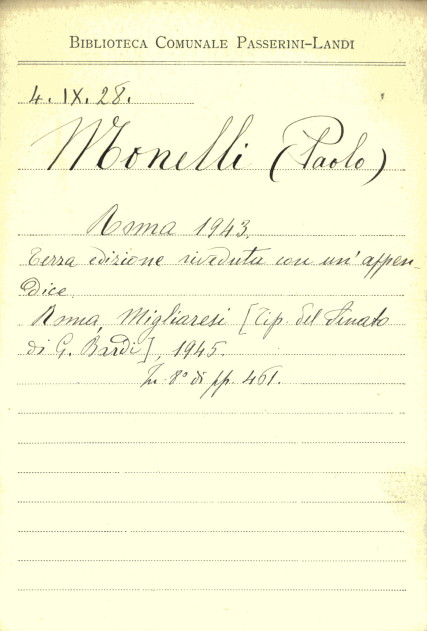 BIBLIOTECA COMUNALE PASSERINI-LANDI
4. IX. 28.
Monelli (Paolo)
Roma 1943.
Terza edizione riveduta con un' appen-
dice.
Roma, Migliaresi [Tip. del Senato
di G. Bardi], 1945.
In-8° di pp. 461.